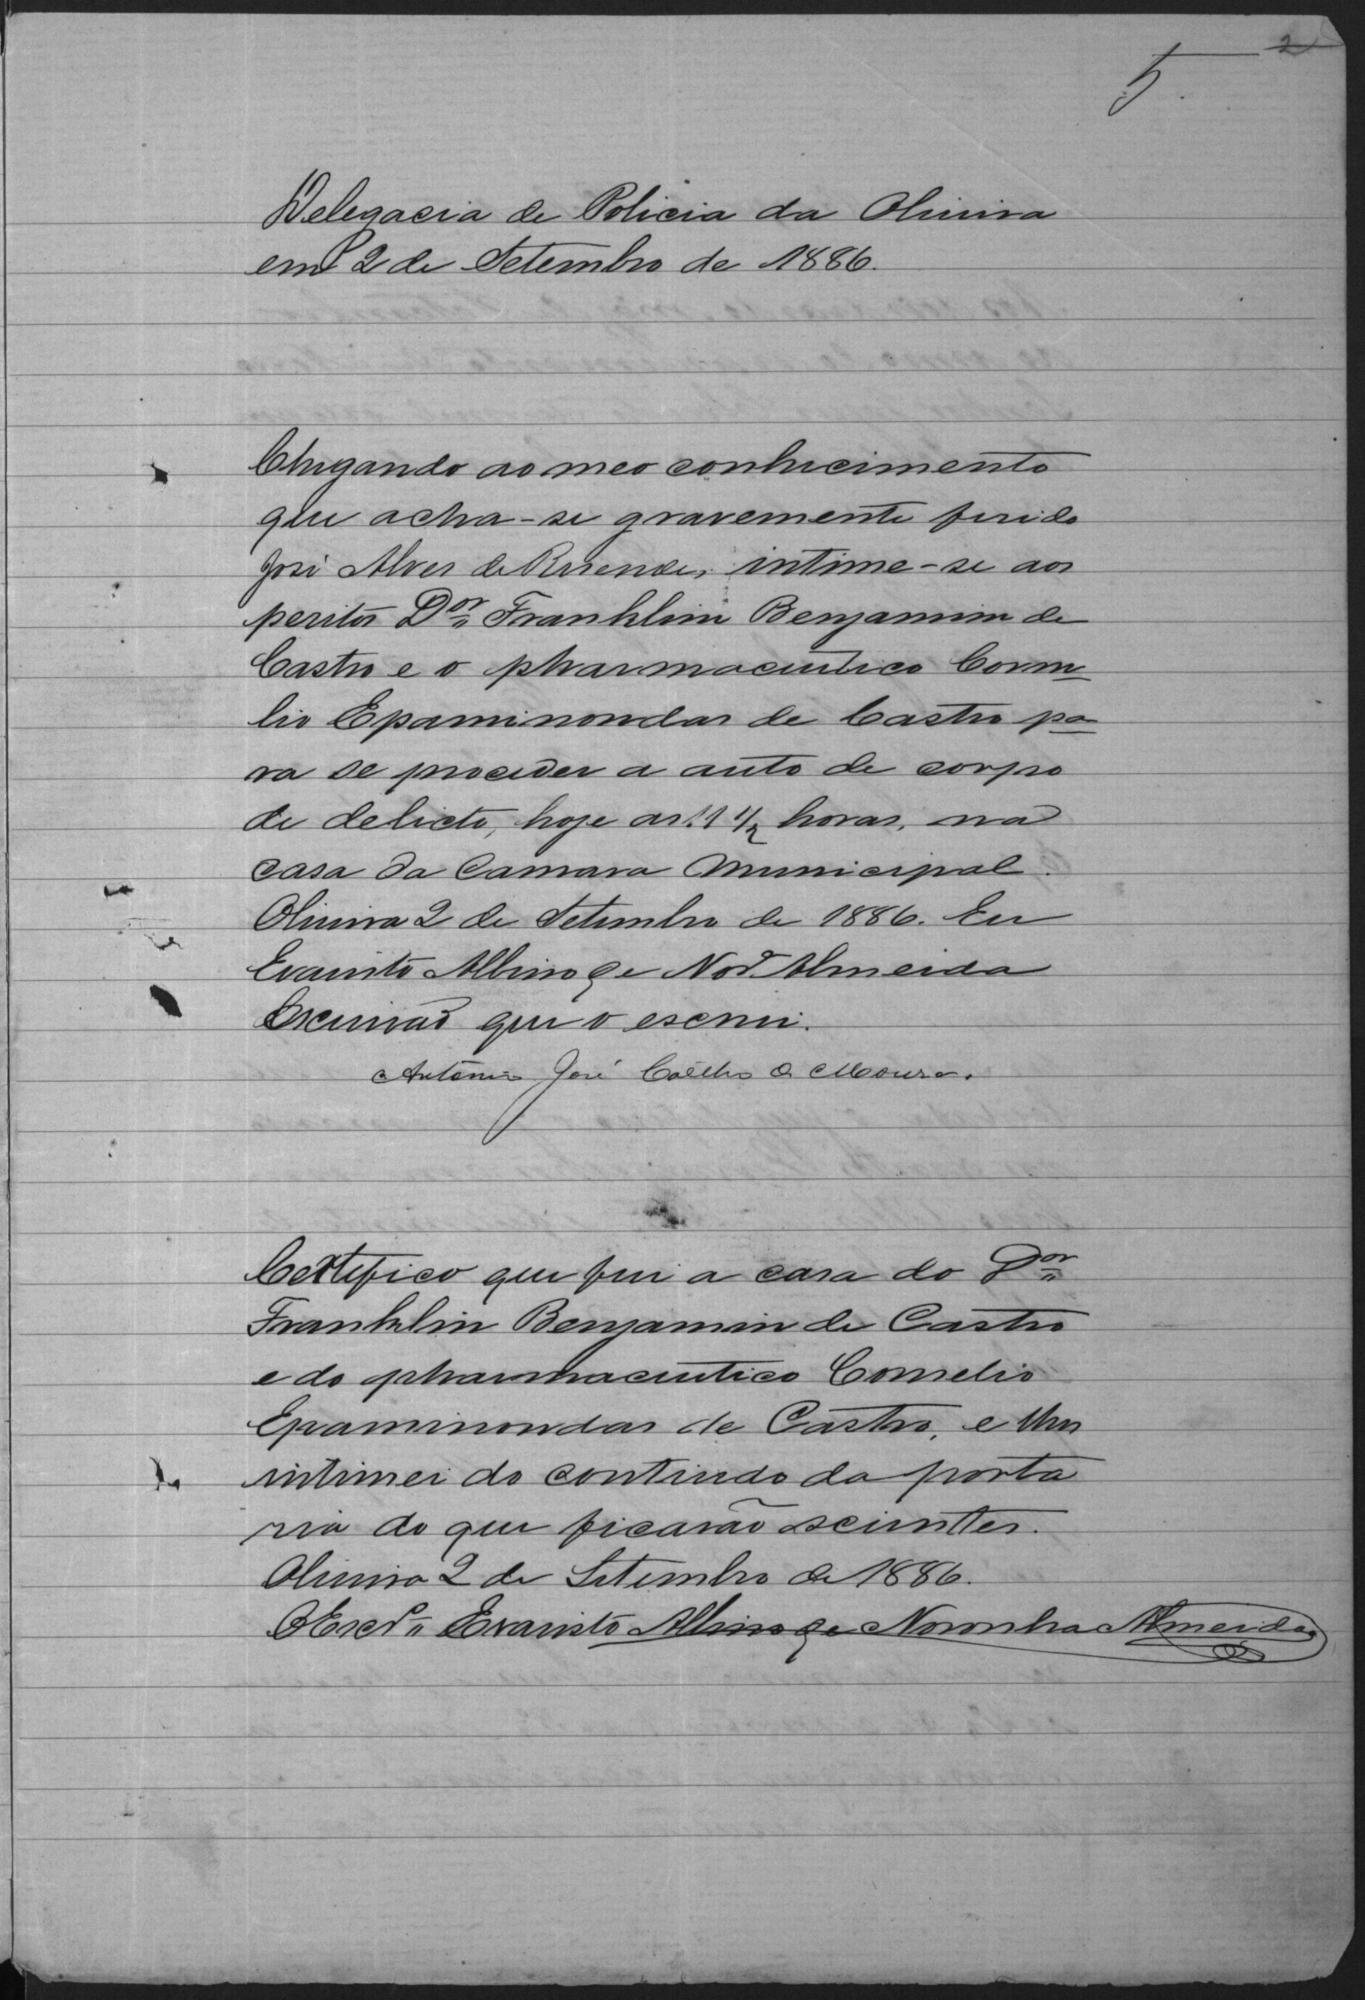 2
5.
Delegacia de Policia da Oliveira
em 2 de Setembro de 1886.
Chegando ao meo conhecimento
que acha-se gravemente ferido
José Alves de Resende, intime-se aos
peritos Dor. Franklim Benjamim de
Castro e o pharmaceutico Corne
lio Epaminondas de Castro pa
ra se proceder a auto de corpo
de delicto, hoje as 11 1/2 horas, na
casa da Camara Municipal.
Oliveira 2 de Setembro de 1886. Eu
Evaristo Albino de Nor.ª Almeida
Escrivaõ que o escrevi.
Antonio José Coêlho de Moura.
Certefico que fui a casa do Dor.
Franklin Benjamin de Castro
e do pharmaceutico Cornelio
Epaminondas de Castro, e lhes
intimei do contiudo da porta
ria do que ficarão scientes.
Oliveira 2 de Setembro de 1886.
O Escr.m Evaristo Albino de Noronha Almeida